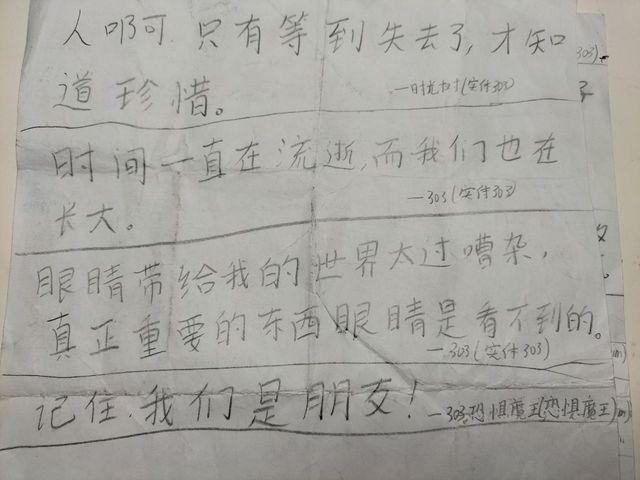 人啊，只有等到失去了，才知
道珍惜。
(实件303)
时间一直在流逝，而我们也在
长大。
—303(实件303)
眼睛带给我的世界太过嘈杂，
真正重要的东西眼睛是看不到的。
—303(实件303)
记住，我们是朋友！—303恐惧魔王(恐惧魔王)